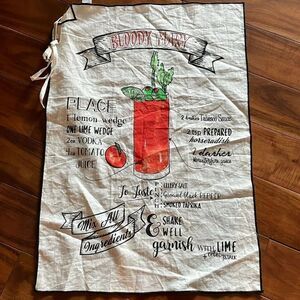 BLOODY MARY
PLACE
1 lemon wedge
ONE LIME WEDGE
2oz VODKA
4oz TOMATO
JUICE
2 dashes Tabasco Sauce
2 tsp PREPARED
horseradish
1 dashes
Worcestershire sauce
To Taste
CELERY SALT
Ground black PEPPER
SMOKED PAPRIKA
Mix All
Ingredients
& SHAKE
WELL
garnish WITH LIME
+ CELERY STALK